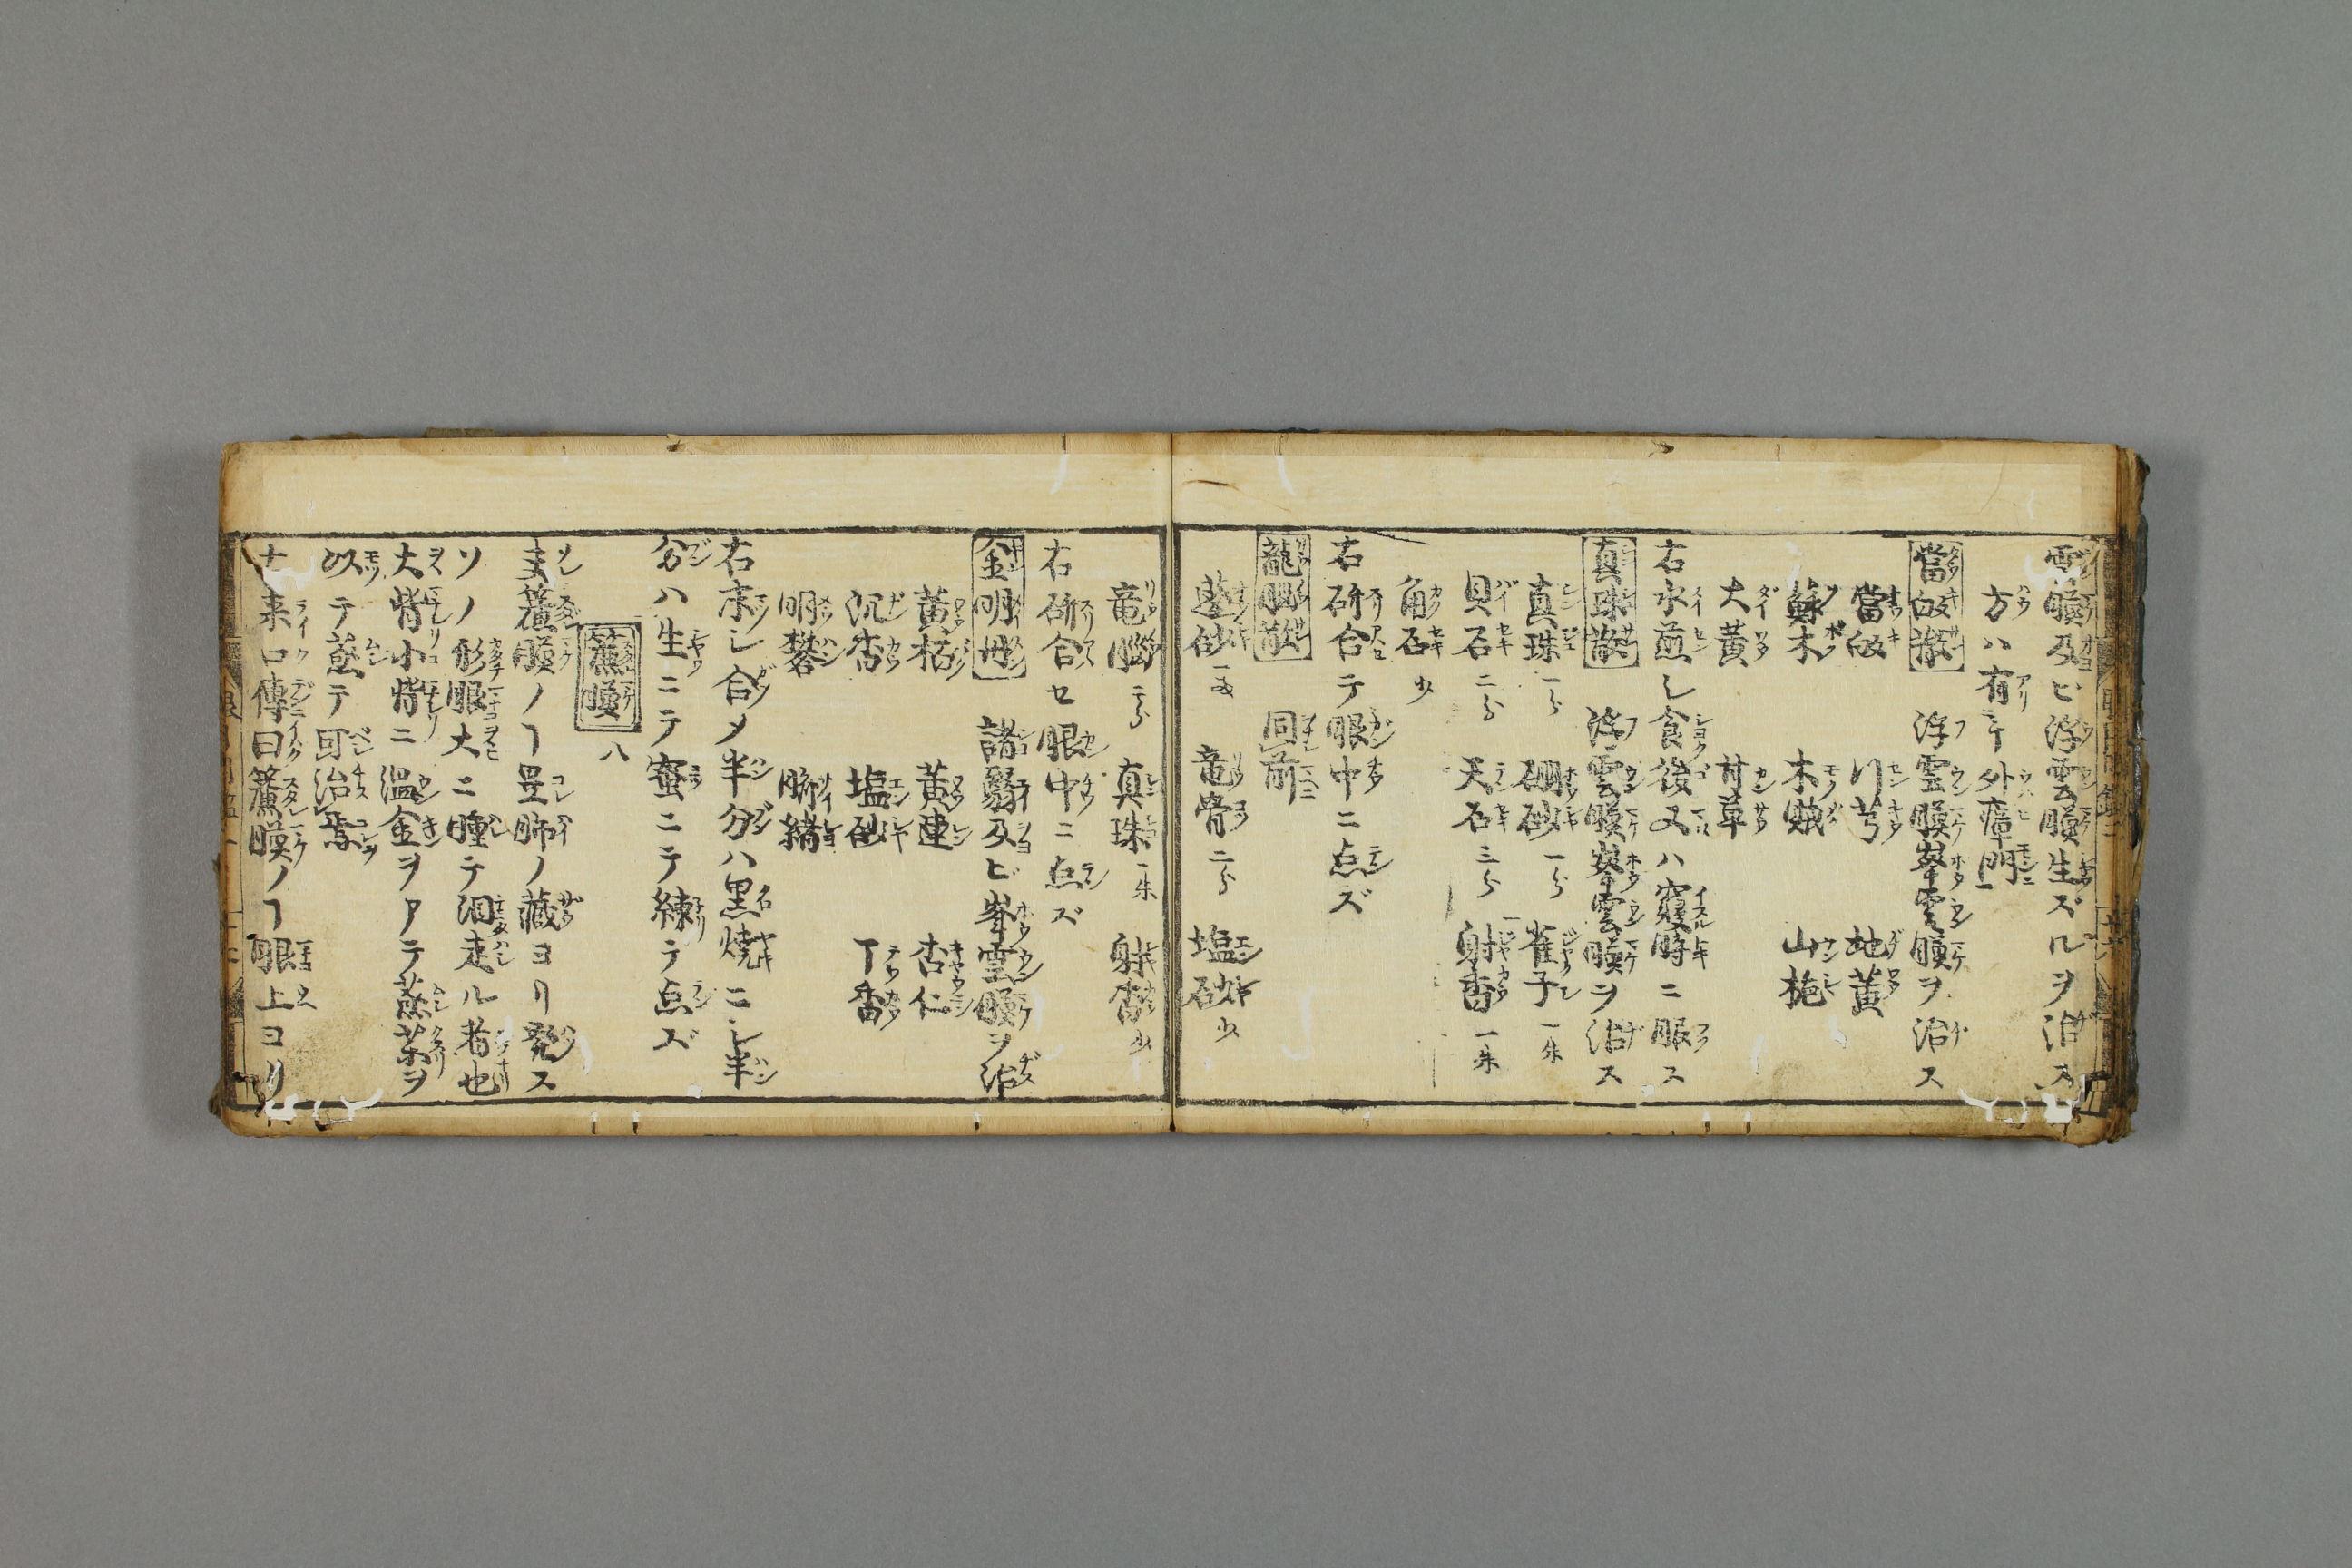 雲膜及ビ浮雲膜生ズルヲ治ス
方ハ有テ外瘴門ニ
當皈散 浮雲膜峯雲膜ヲ治ス
當皈 川芎 地黄
蘇木 木賊 山梔
大黄 甘草
右水煎シ食後又ハ寝時ニ服ス
真珠散 浮雲膜峯雲膜ヲ治ス
真珠 一分 硼砂 一分 雀子 一朱
貝石 二分 天石 三分 射香 一朱
角石 少
右研合テ眼中ニ点ズ
龍脳散 同前
蓬砂 竜骨 二分 塩砂 少
竜脳 二分 真珠 一朱 射香 少
右研合セ眼中ニ点ズ
金明丹 諸翳及ビ峯雲膜ヲ治
黄栢 黄連 杏仁
沉香 塩砂 丁香
明礬 臍緒
右末シ合メ半分ハ黒焼ニシ半
分ハ生ニテ蜜ニテ練テ点ズ
簾膜 八
夫簾膜ノヿ是肺ノ藏ヨリ発ス
ソノ形眼大ニ瞳テ泪走ル者也
大眥小眥ニ温金ヲアテ蒸薬ヲ
以テ蒸テ可治焉
来口傳曰簾膜ノヿ眼上ヨリ